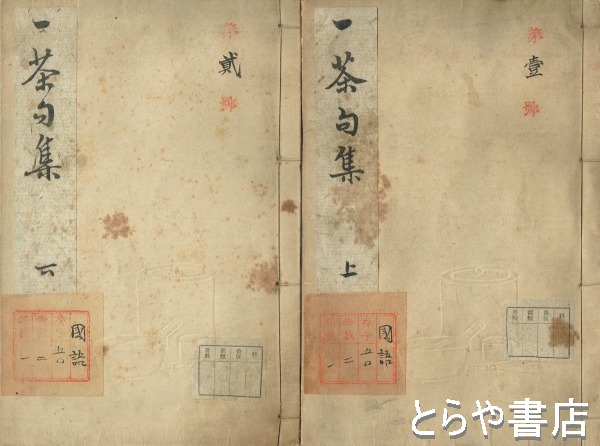 一茶句集 上
第壹號
國語
五〇
二
一
一茶句集 下
第貳號
國語
五〇
二
一
とらや書店